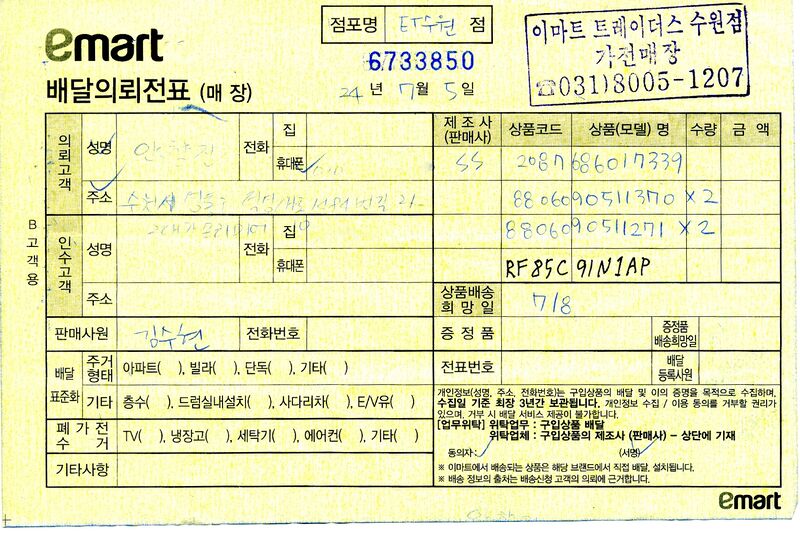 emart
점포명 ET수원 점
이마트 트레이더스 수원점
가전매장
☎031)8005-1207
6733850
배달의뢰전표 (매 장)
24 년 7 월 5 일
B 고객용
의뢰고객
성명
전화
집
휴대폰
주소 수원시
인수고객
성명
전화
집
휴대폰
주소
제 조 사 (판매사) 상품코드 상품(모델) 명 수량 금 액
SS 2087686017339
8806090511370 ×2
8806090511271 ×2
RF85C91N1AP
상품배송 희망일 7/8
판매사원 김수현 전화번호
증 정 품 증정품 배송희망일
전표번호 배달 등록사원
배달 표준화
주거 형태 아파트( ), 빌라( ), 단독( ), 기타( )
기타 층수( ), 드럼실내설치( ), 사다리차( ), E/V유( )
폐 가 전 수 거 TV( ), 냉장고( ), 세탁기( ), 에어컨( ), 기타( )
기타사항
개인정보(성명, 주소, 전화번호)는 구입상품의 배달 및 이의 증명을 목적으로 수집하며,
수집일 기준 최장 3년간 보관됩니다. 개인정보 수집 / 이용 동의를 거부할 권리가
있으며, 거부 시 배달 서비스 제공이 불가합니다.
[업무위탁] 위탁업무 : 구입상품 배달
위탁업체 : 구입상품의 제조사 (판매사) – 상단에 기재
동의자 : (서명)
※ 이마트에서 배송되는 상품은 해당 브랜드에서 직접 배달, 설치됩니다.
※ 배송 정보의 출처는 배송신청 고객의 의뢰에 근거합니다.
emart